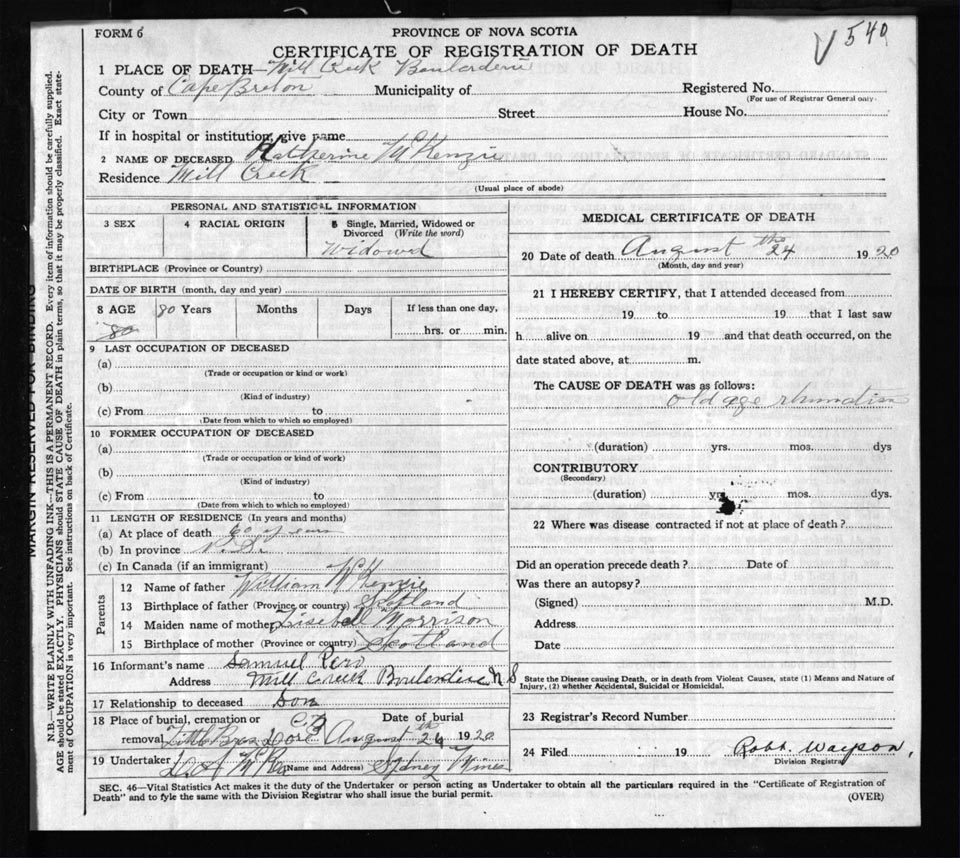 FORM 6
PROVINCE OF NOVA SCOTIA
540
CERTIFICATE OF REGISTRATION OF DEATH
1 PLACE OF DEATH Mill Creek Boularderie
County of Cape Breton Municipality of Registered No.
(For use of Registrar General only)
City or Town Street House No.
If in hospital or institution, give name
2 NAME OF DECEASED Katherine McKenzie
Residence Mill Creek
(Usual place of abode)
PERSONAL AND STATISTICAL INFORMATION
3 SEX 4 RACIAL ORIGIN 5 Single, Married, Widowed or
Divorced (Write the word)
Widowed
BIRTHPLACE (Province or Country)
DATE OF BIRTH (month, day and year)
8 AGE 80 Years Months Days If less than one day,
80 hrs. or min.
9 LAST OCCUPATION OF DECEASED
(a)
(Trade or occupation or kind or work)
(b)
(Kind of industry)
(c) From to
(Date from which to which so employed)
10 FORMER OCCUPATION OF DECEASED
(a)
(Trade or occupation or kind of work)
(b)
(Kind of industry)
(c) From to
(Date from which to which so employed)
11 LENGTH OF RESIDENCE (In years and months)
(a) At place of death 60 years
(b) In province N.S.
(c) In Canada (if an immigrant)
Parents
12 Name of father William McKenzie
13 Birthplace of father (Province or country) Scotland
14 Maiden name of mother Morrison
15 Birthplace of mother (Province or country) Scotland
16 Informant's name Samuel
Address Mill Creek Boularderie N S
17 Relationship to deceased Son
18 Place of burial, cremation or Date of burial
removal Little Bras Dor August 24 1920
19 Undertaker (Name and Address) Sydney Mines
MEDICAL CERTIFICATE OF DEATH
20 Date of death August 24th 1920
(Month, day and year)
21 I HEREBY CERTIFY, that I attended deceased from
19 to 19 that I last saw
h alive on 19 and that death occurred, on the
date stated above, at m.
The CAUSE OF DEATH was as follows:
Old age
(duration) yrs. mos. dys
CONTRIBUTORY
(Secondary)
(duration) yrs. mos. dys.
22 Where was disease contracted if not at place of death?
Did an operation precede death? Date of
Was there an autopsy?
(Signed) M.D.
Address
Date
State the Disease causing Death, or in death from Violent Causes, state (1) Means and Nature of
Injury, (2) whether Accidental, Suicidal or Homicidal.
23 Registrar's Record Number
24 Filed 19 Robt.
Division Registrar
SEC. 46—Vital Statistics Act makes it the duty of the Undertaker or person acting as Undertaker to obtain all the particulars required in the "Certificate of Registration of
Death" and to fyle the same with the Division Registrar who shall issue the burial permit.
(OVER)
MARGIN RESERVED FOR BINDING
N.B.—WRITE PLAINLY WITH UNFADING INK—THIS IS A PERMANENT RECORD. Every item of information should be carefully supplied.
AGE should be stated EXACTLY. PHYSICIANS should STATE CAUSE OF DEATH in plain terms, so that it may be properly classified. Exact state-
ment of OCCUPATION is very important. See instructions on back of Certificate.